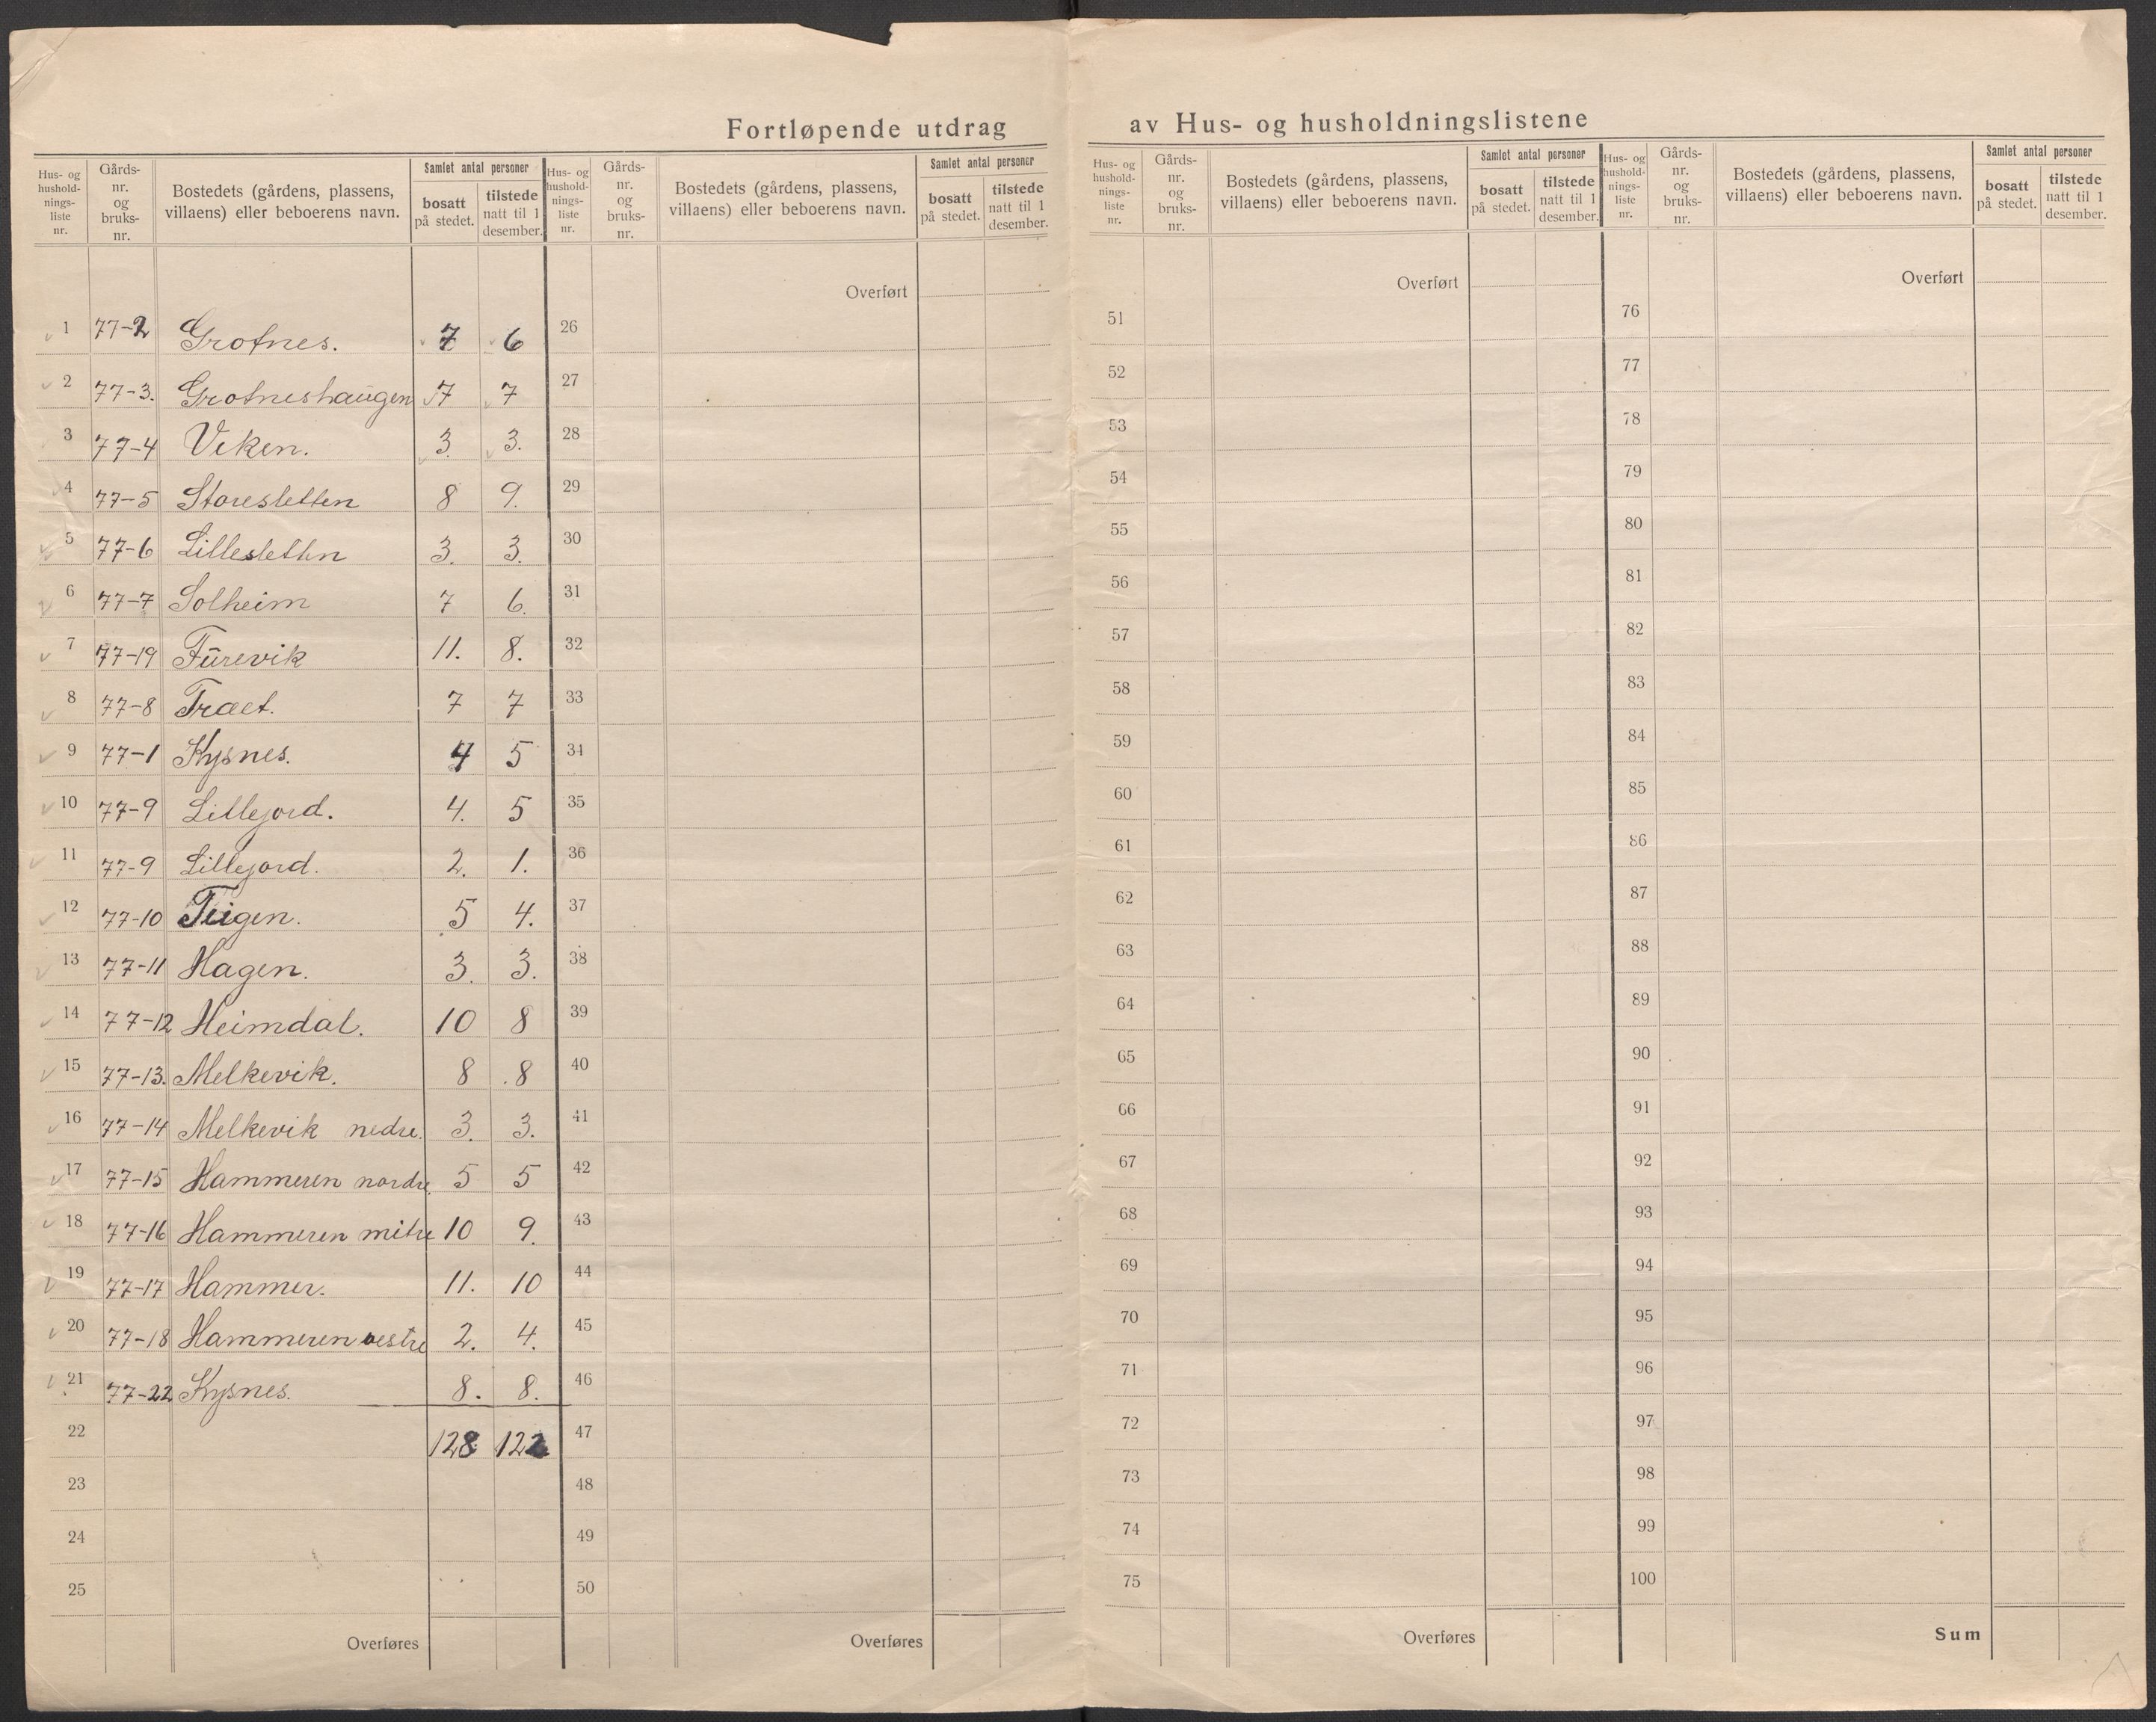 Fortløpende utdrag av Hus- og husholdningslistene
Hus- og hushold-nings-liste nr. | Gårds-nr. og bruks-nr. | Bostedets (gårdens, plassens, villaens) eller beboerens navn. | Samlet antal personer | bosatt på stedet. | tilstede natt til 1 desember.
1 77-2 Grotnes. 7 6
2 77-3. Grotneshaugen 7 7
3 77-4 Veken. 3. 3.
4 77-5 Storesletten 8 9.
5 77-6 Lillesletten 3. 3.
6 77-7 Solheim 7 6.
7 77-19 Furevik 11. 8.
8 77-8 Traet. 7 7
9 77-1 Kysnes. 4 5
10 77-9 Lillejord. 4. 5
11 77-9 Lillejord. 2. 1.
12 77-10 Teigen. 5 4.
13 77-11 Hagen. 3. 3.
14 77-12 Heimdal. 10 8
15 77-13. Melkevik. 8 8
16 77-14 Melkevik nedre. 3. 3.
17 77-15 Hammeren nordre. 5 5
18 77-16 Hammeren mitre 10 9.
19 77-17 Hammer. 11. 10
20 77-18 Hammeren vestre 2. 4.
21 77-22 Kysnes. 8. 8.
22 128 122
23
24
25
Overføres
Hus- og hushold-nings-liste nr. | Gårds-nr. og bruks-nr. | Bostedets (gårdens, plassens, villaens) eller beboerens navn. | Samlet antal personer | bosatt på stedet. | tilstede natt til 1 desember.
Overført
26
27
28
29
30
31
32
33
34
35
36
37
38
39
40
41
42
43
44
45
46
47
48
49
50
Overføres
Hus- og hushold-nings-liste nr. | Gårds-nr. og bruks-nr. | Bostedets (gårdens, plassens, villaens) eller beboerens navn. | Samlet antal personer | bosatt på stedet. | tilstede natt til 1 desember.
Overført
51
52
53
54
55
56
57
58
59
60
61
62
63
64
65
66
67
68
69
70
71
72
73
74
75
Overføres
Hus- og hushold-nings-liste nr. | Gårds-nr. og bruks-nr. | Bostedets (gårdens, plassens, villaens) eller beboerens navn. | Samlet antal personer | bosatt på stedet. | tilstede natt til 1 desember.
Overført
76
77
78
79
80
81
82
83
84
85
86
87
88
89
90
91
92
93
94
95
96
97
98
99
100
Sum